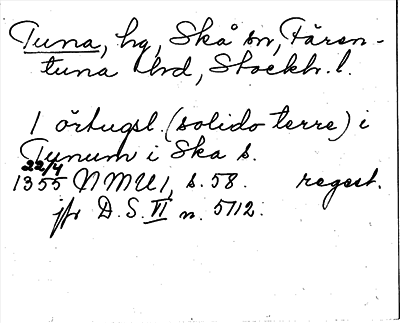 Tuna, hg, Skå sn, Fären-
tuna hd, Stockh. l.
1 örtugsl. (solido terre) i
Tunum i Ska s.
22/4
1355 NMU 1, s. 58. regest.
jfr D.S. VI n. 5112.